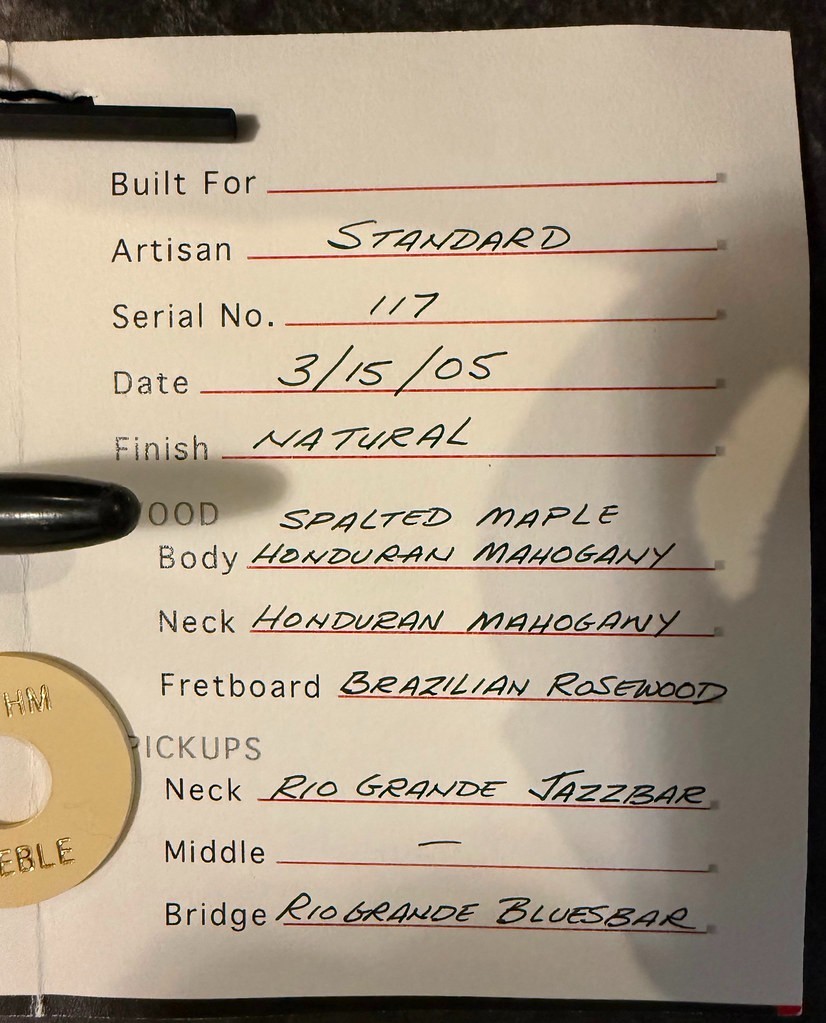 Built For
Artisan STANDARD
Serial No. 117
Date 3/15/05
Finish NATURAL
OOD SPALTED MAPLE
Body HONDURAN MAHOGANY
Neck HONDURAN MAHOGANY
Fretboard BRAZILIAN ROSEWOOD
HM
PICKUPS
Neck RIO GRANDE JAZZBAR
Middle —
EBLE
Bridge RIO GRANDE BLUESBAR